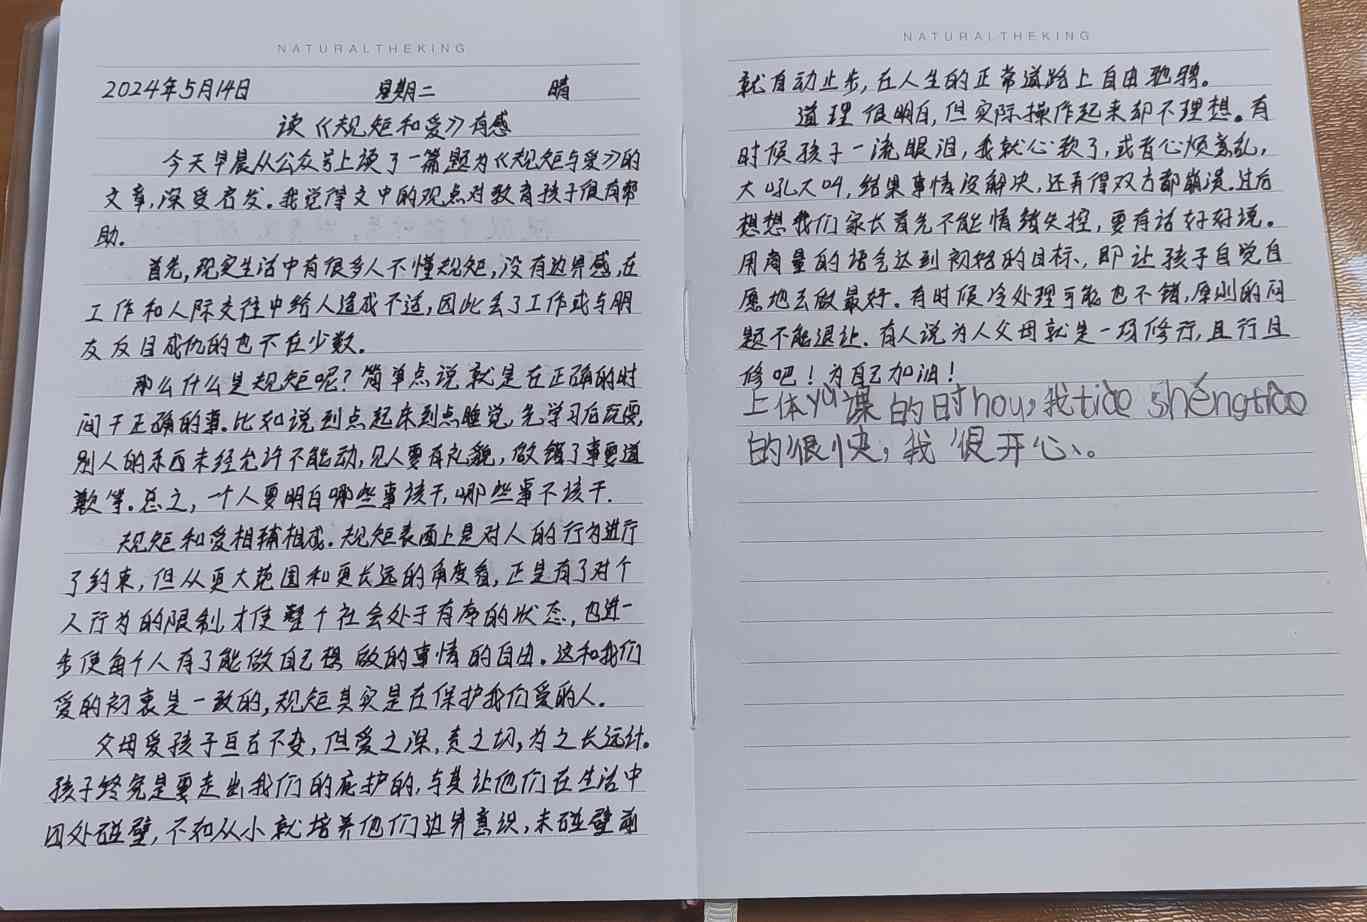 NATURALTHEKING
2024年5月14日 星期二 晴
读《规矩和爱》有感
今天早晨从公众号上读了一篇题为《规矩与爱》的
文章,深受启发。我觉得文中的观点对教育孩子很有帮
助.
首先,现实生活中有很多人不懂规矩,没有边界感,在
工作和人际交往中给人造成不适,因此丢了工作或与朋
友反目成仇的也不在少数.
那么什么是规矩呢?简单点说就是在正确的时
间干正确的事.比如说到点起床到点睡觉,先学习后玩耍,
别人的东西未经允许不能动,见人要有礼貌,做错了事要道
歉等.总之,一个人要明白哪些事该干,哪些事不该干.
规矩和爱相辅相成.规矩表面上是对人的行为进行
了约束,但从更大范围和更长远的角度看,正是有了对个
人行为的限制,才使整个社会处于有序的状态,也进一
步使每个人有了能做自己想做的事情的自由.这和我们
爱的初衷是一致的,规矩其实是在保护我们爱的人.
父母爱孩子亘古不变,但爱之深,责之切,为之长远计.
孩子终究是要走出我们的庇护的,与其让他们在生活中
四处碰壁,不如从小就培养他们边界意识,未碰壁前
NATURALTHEKING
就自动止步,在人生的正常道路上自由驰骋。
道理很明白,但实际操作起来却不理想。有
时候孩子一流眼泪,我就心软了,或者心烦意乱,
大吼大叫,结果事情没解决,还弄得双方都崩溃.过后
想想我们家长首先不能情绪失控,要有话好好说。
用商量的语气达到初始的目标,即让孩子自觉自
愿地去做最好。有时候冷处理可能也不错,原则的问
题不能退让.有人说为人父母就是一场修行,且行且
修吧!为自己加油!
上体yù课的时hou,我tiào shéngtiào
的很快,我很开心、。